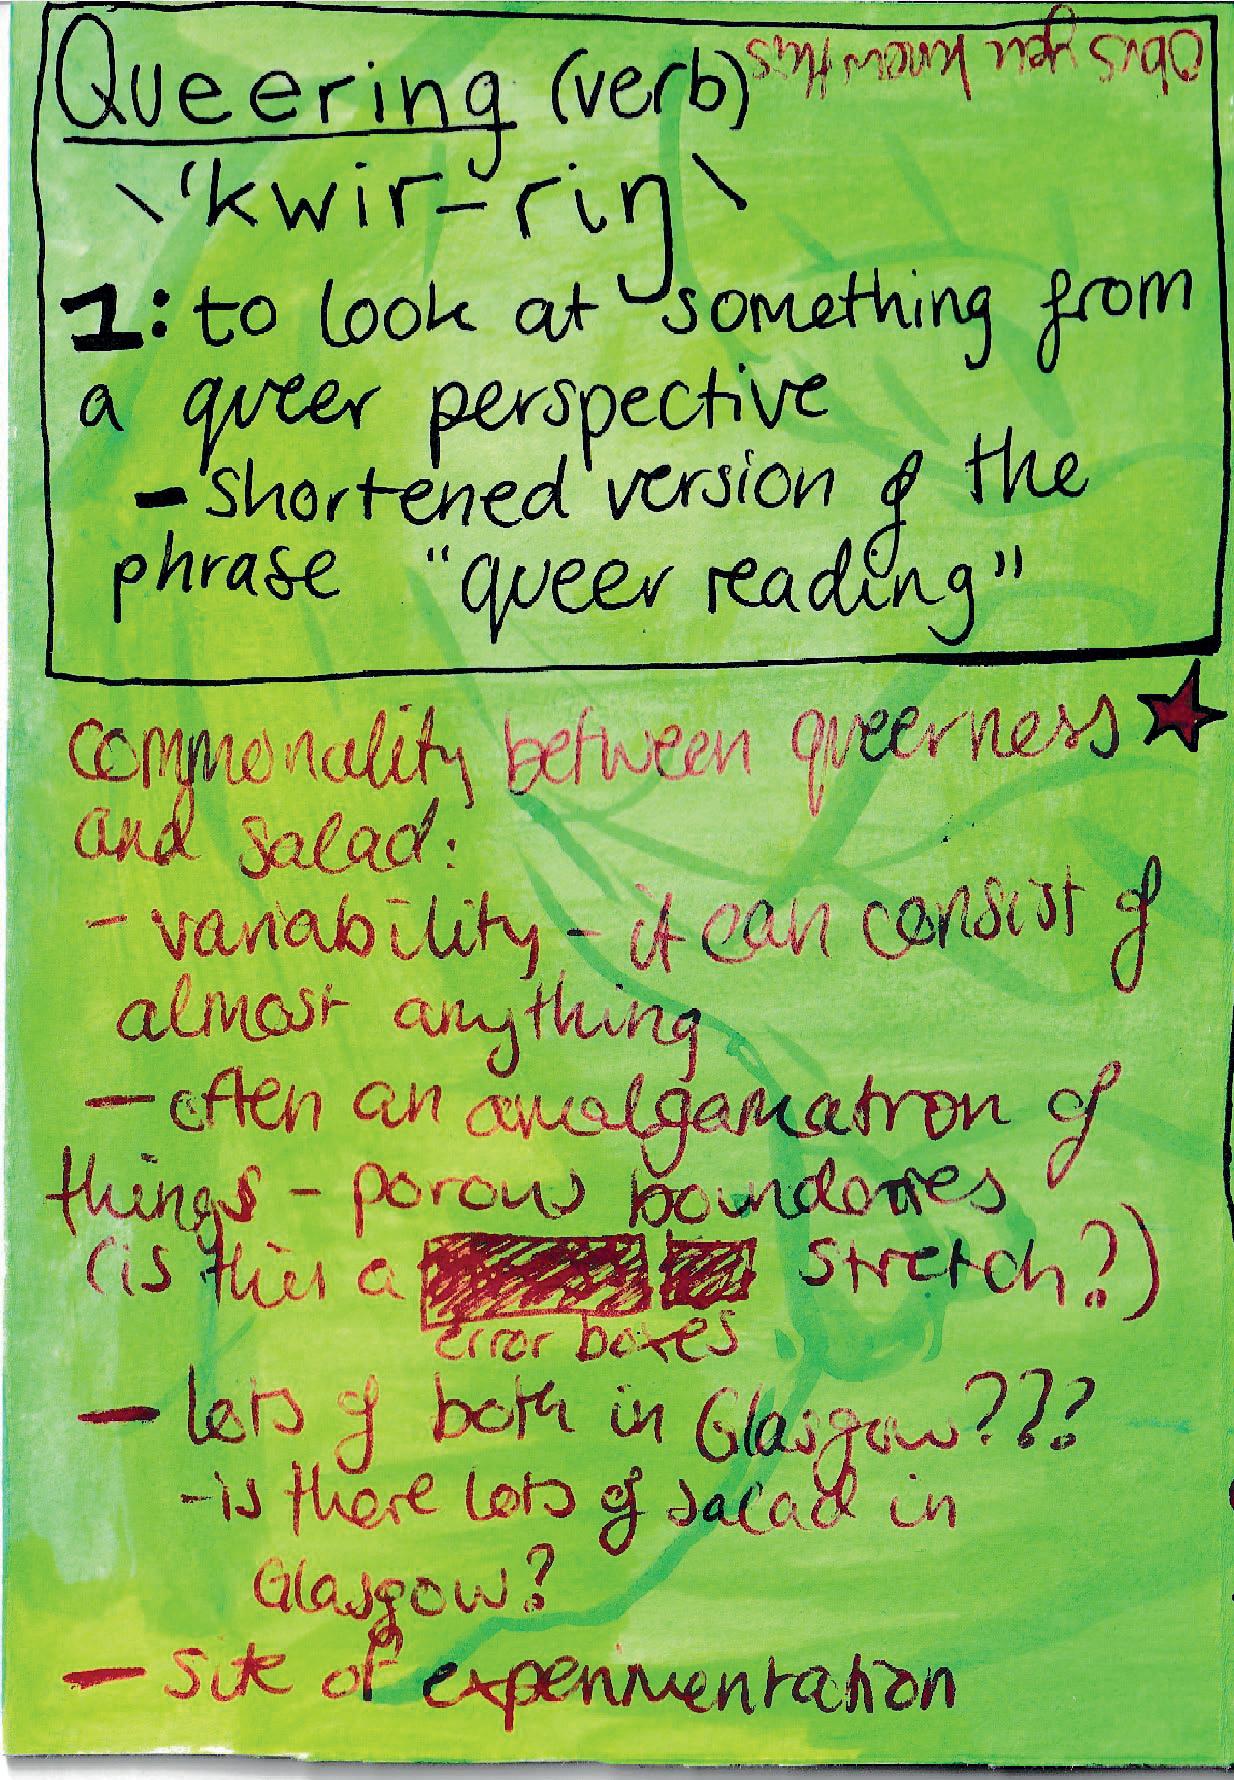 Queering (verb)
obvs you know this
\ˈkwir-riŋ\
1: to look at something from
a queer perspective
- shortened version of the
phrase "queer reading"
commonality between queerness
and salad:
- variability - it can consist of
almost anything
- often an amalgamation of
things - porous boundaries
(is this a stretch?)
error boxes
- lots of both in Glasgow???
- is there lots of salad in
Glasgow?
- site of experimentation